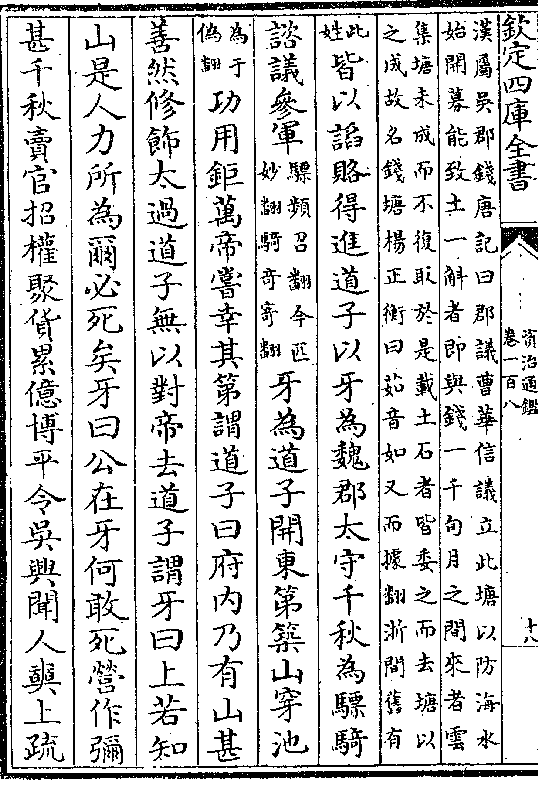 欽定四庫全書
資治通鑑
卷一百八
十八
漢屬吳郡錢唐記曰郡議曹華信議立此塘以防海水
始開募能致土一斛者即與錢一千旬月之間來者雲
集塘未成而不復取於是載土石者皆委之而去塘以
之成故名錢塘楊正衡曰茹音如又而據翻浙間舊有
此姓皆以諂賂得進道子以牙為魏郡太守千秋為驃騎
諮議參軍驃頻召翻今匹妙翻騎奇寄翻牙為道子開東第築山穿池
為于偽翻功用鉅萬帝嘗幸其第謂道子曰府內乃有山甚
善然修飾太過道子無以對帝去道子謂牙曰上若知
山是人力所為爾必死矣牙曰公在牙何敢死營作彌
甚千秋賣官招權聚貨累億博平令吳興聞人奭上疏